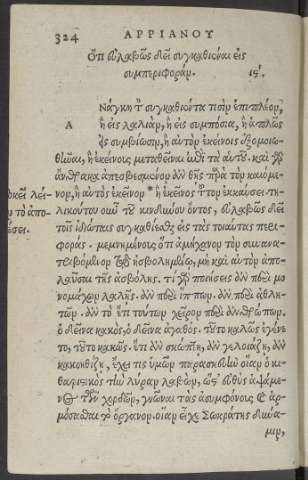 324 ΑΡΡΙΑΝΟΥ
Ὅτι εὐλαβῶς δεῖ συγκαθιέναι εἰς
συμπεριφοράν. ιϛ'.
Νάγκη τὸν συγκαθιέντα τισὶν ἐπιπλέον,
Α ἢ εἰς λαλιὰν, ἢ εἰς συμπόσια, ἢ ἁπλῶς
εἰς συμβίωσιν, ἢ αὐτὸν ἐκείνοις ἐξομοιω-
θῆναι, ἢ ἐκείνους μεταθεῖναι ἐπὶ τὰ αὑτοῦ. καὶ γὰρ
ἄνθρακα ἀπεσβεσμένον ἂν θῇς παρὰ τὸν καιόμε-
νον, ἢ αὐτὸς ἐκεῖνον * ἢ ἐκεῖνος τοῦτον ἐκκαύσει. τη-
λικούτου οὖν τοῦ κινδύνου ὄντος, εὐλαβῶς δεῖ
τοῖς ἰδιώταις συγκαθίεσθαι εἰς τὰς τοιαύτας περι-
φοράς. μεμνημένους ὅτι ἀμήχανον τὸν συνανα-
τριβόμενον τῷ ἠσβολημένῳ, μὴ καὶ αὐτὸν ἀπο-
λαῦσαι τῆς ἀσβόλης. τί γὰρ ποιήσεις ἂν περὶ μο
νομάχων λαλῇς. ἂν περὶ ἵππων. ἂν περὶ ἀθλη-
τῶν. ἂν τὸ ἔτι τούτων χεῖρον περὶ ἀνθρώπων.
ὁ δεῖνα κακὸς, ὁ δεῖνα ἀγαθός. τοῦτο καλῶς ἐγένε
το, τοῦτο κακῶς. ἔτι ἂν σκώπτῃ, ἂν γελοιάζῃ, ἂν
κακοηθίζῃ, ἔχει τις ὑμῶν παρασκευὴν οἵαν ὁ κι-
θαριστικὸς τὴν λύραν λαβὼν, ὥστ' εὐθὺς ἁψάμε-
νος τῶν χορδῶν, γνῶναι τὰς ἀσυμφόνους, καὶ ἁρ-
μόσασθαι τὸ ὄργανον. οἵαν εἶχε Σωκράτης δύνα-
μιν,
δοκεῖ λεί-
ν τὸ ἀπο-
έσει.